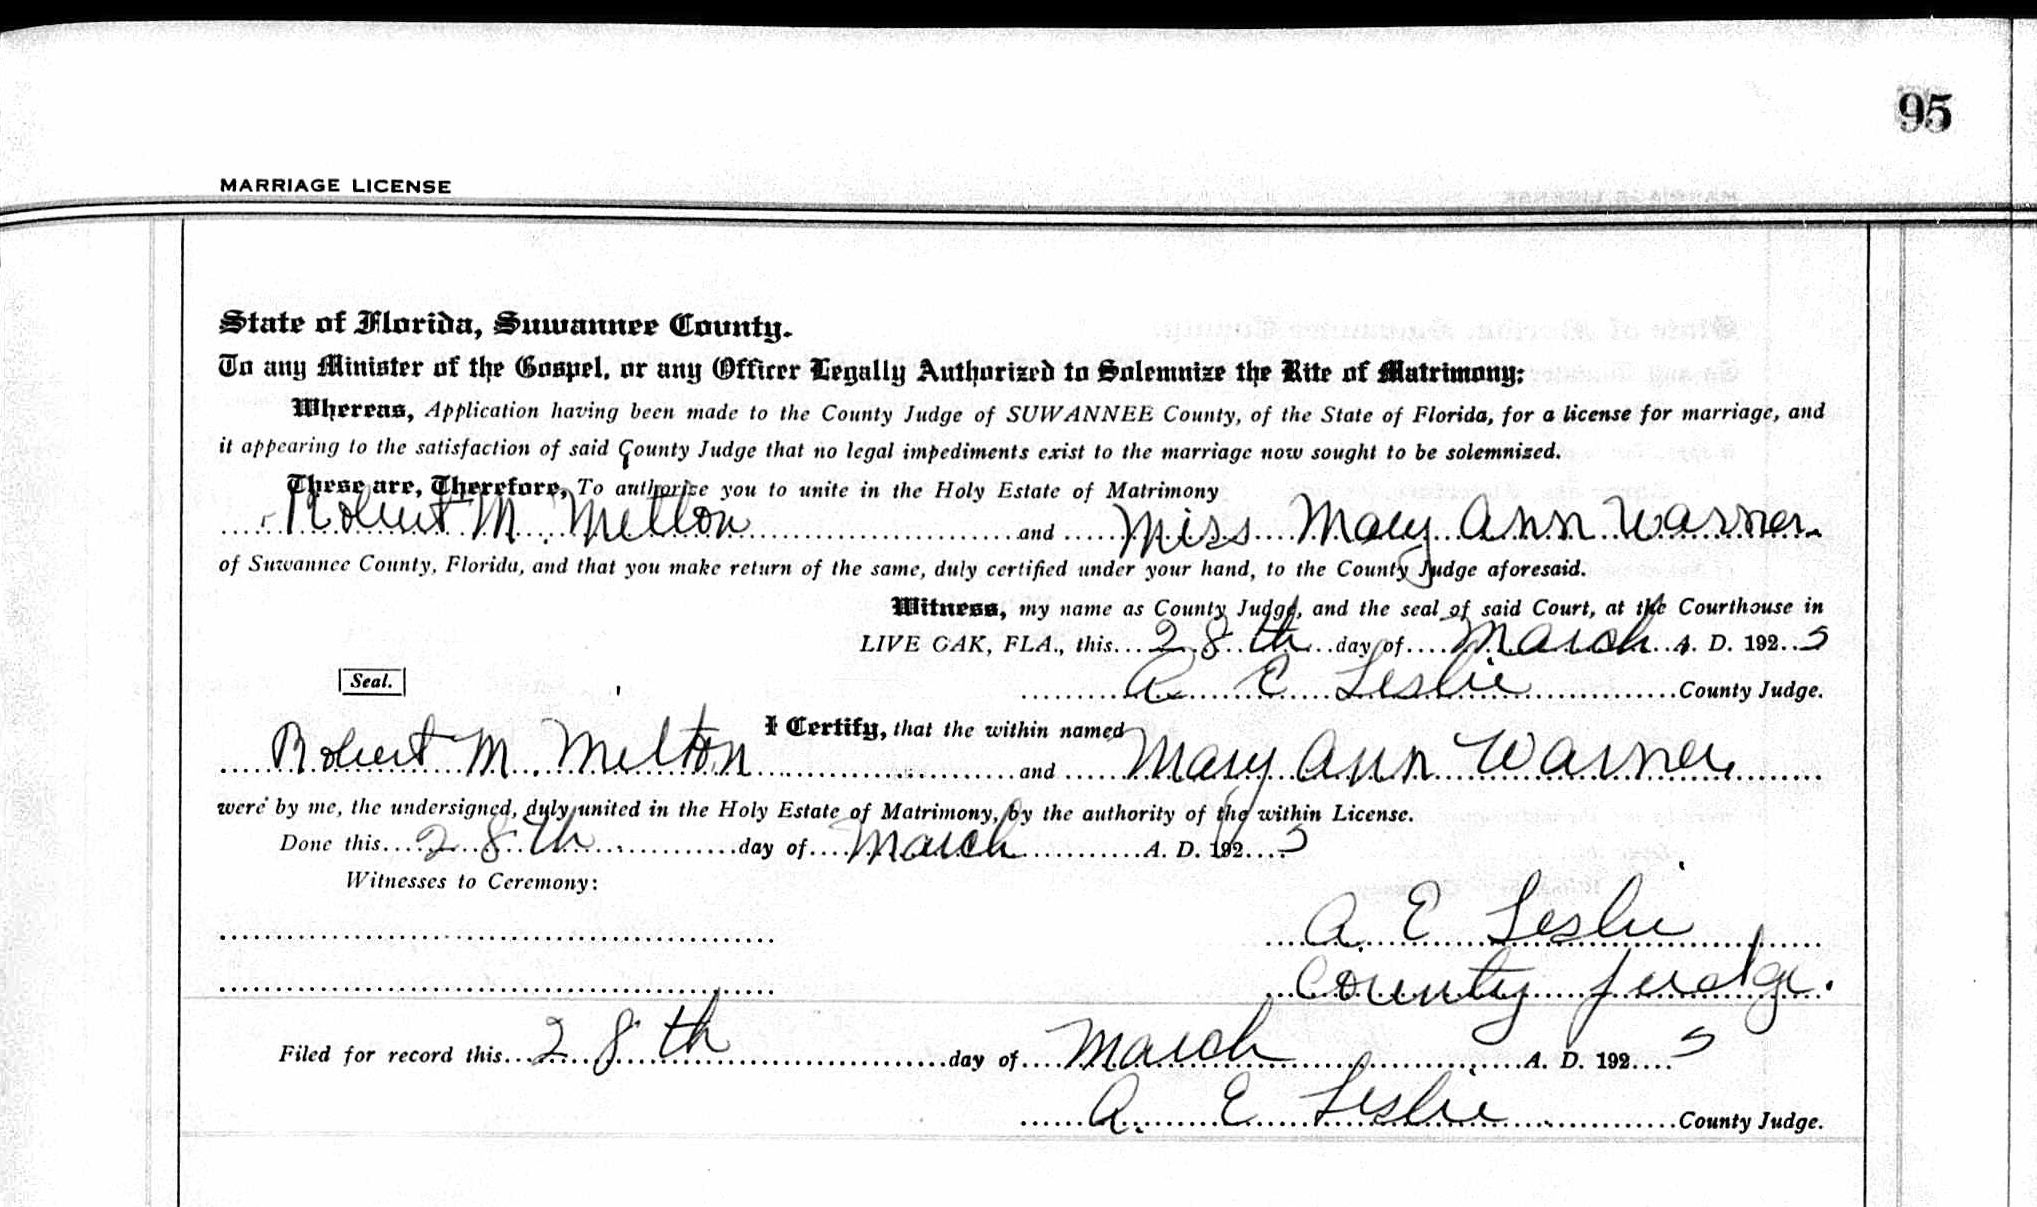 95
MARRIAGE LICENSE
State of Florida, Suwannee County.
To any Minister of the Gospel, or any Officer Legally Authorized to Solemnize the Rite of Matrimony:
Whereas, Application having been made to the County Judge of SUWANNEE County, of the State of Florida, for a license for marriage, and
it appearing to the satisfaction of said County Judge that no legal impediments exist to the marriage now sought to be solemnized.
These are, Therefore, To authorize you to unite in the Holy Estate of Matrimony
Robert M. Melton and Miss Mary Ann Warner
of Suwannee County, Florida, and that you make return of the same, duly certified under your hand, to the County Judge aforesaid.
Witness, my name as County Judge, and the seal of said Court, at the Courthouse in
LIVE OAK, FLA., this 28th day of March A. D. 1925
Seal.
A E Leslie County Judge.
I Certify, that the within named
Robert M. Melton and Mary Ann Warner
were by me, the undersigned, duly united in the Holy Estate of Matrimony, by the authority of the within License.
Done this 28th day of March A. D. 1925
Witnesses to Ceremony:
A. E Leslie
County Judge.
Filed for record this 28th day of March A. D. 1925
A. E Leslie County Judge.